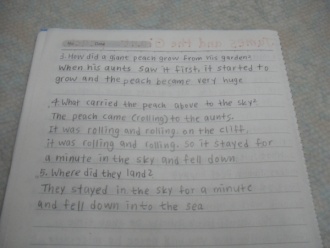 3. How did a giant peach grew from his garden?
When his aunts saw it first, it started to
grow and the peach became very huge
4. What carried the peach above to the sky?
The peach came (rolling) to the aunts.
It was rolling and rolling on the cliff,
it was rolling and rolling. so it stayed for
a minute in the sky and fell down
5. Where did they land?
They stayed in the sky for a minute
and fell down into the sea